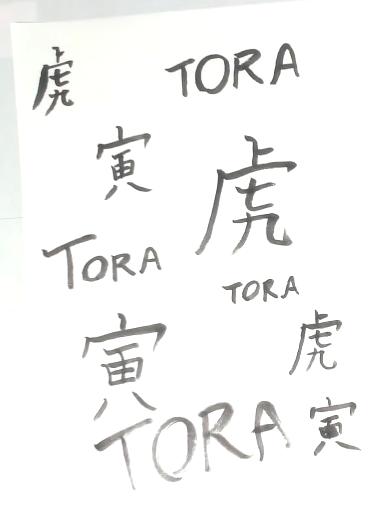 虎
TORA
寅
虎
TORA
TORA
寅
虎
TORA
寅